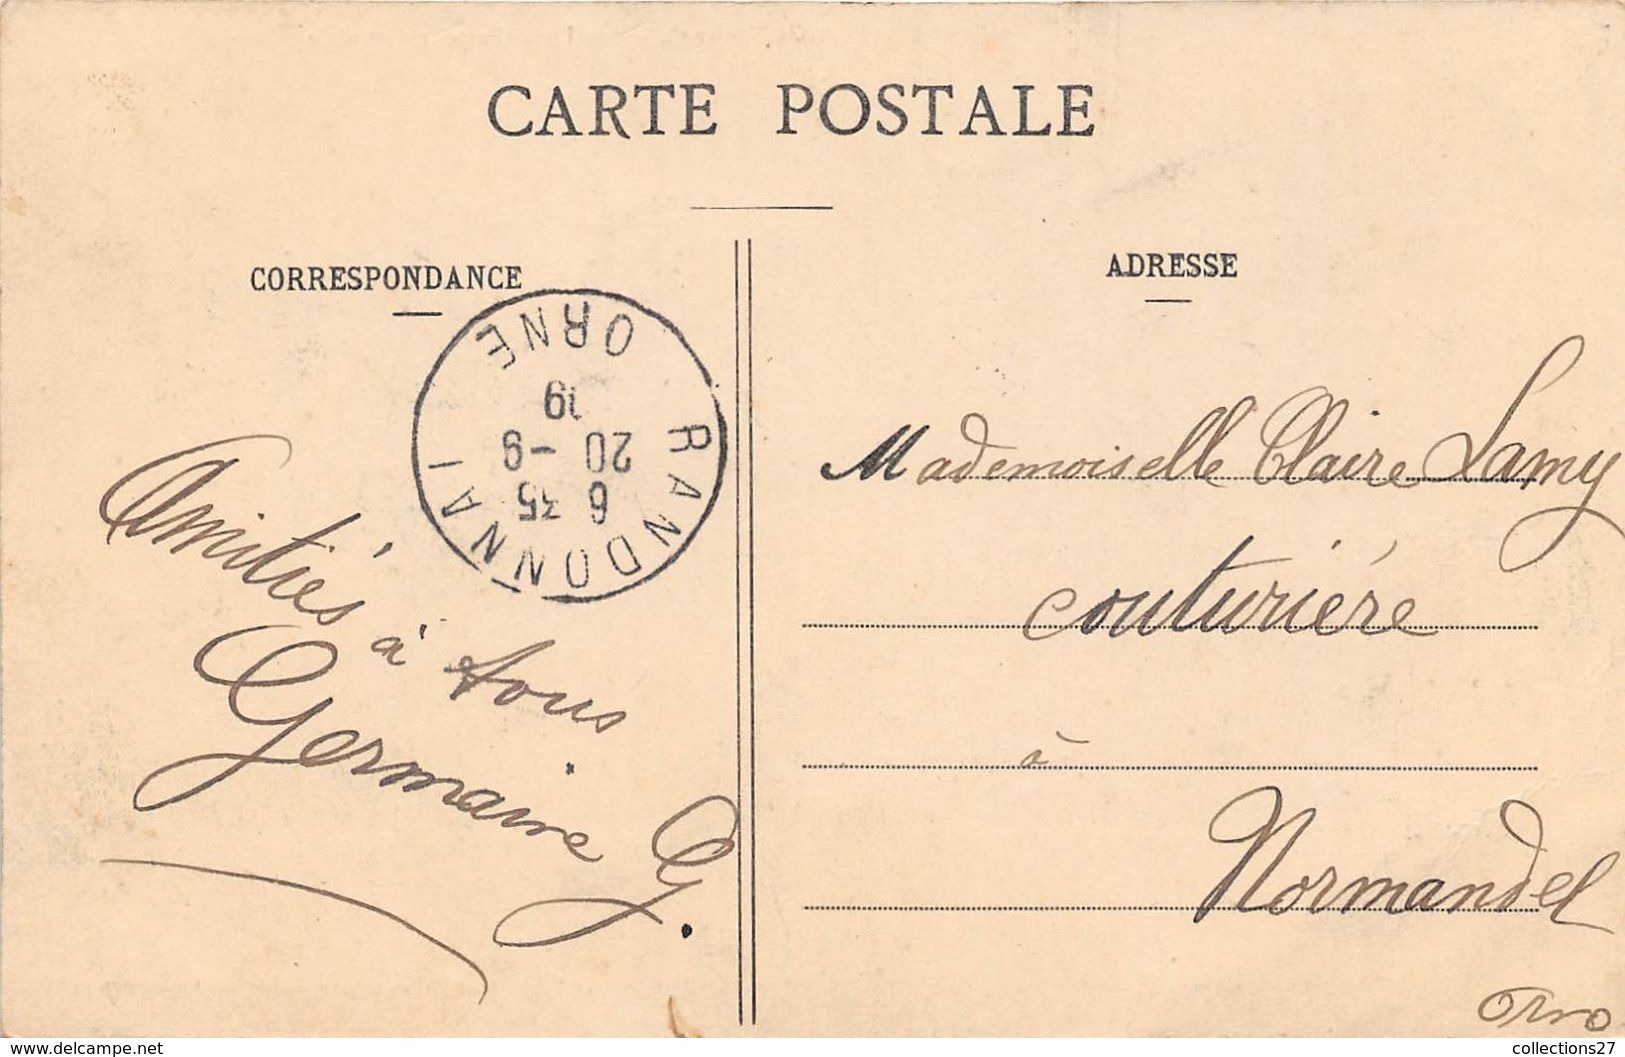 CARTE POSTALE
CORRESPONDANCE
ADRESSE
RANDONNAI
6 35
20 - 9
09
ORNE
Amitiés
à tous
Germaine G.
Mademoiselle Claire Lamy
couturière
à
Normandel
Orne
www.delcampe.net
collections27